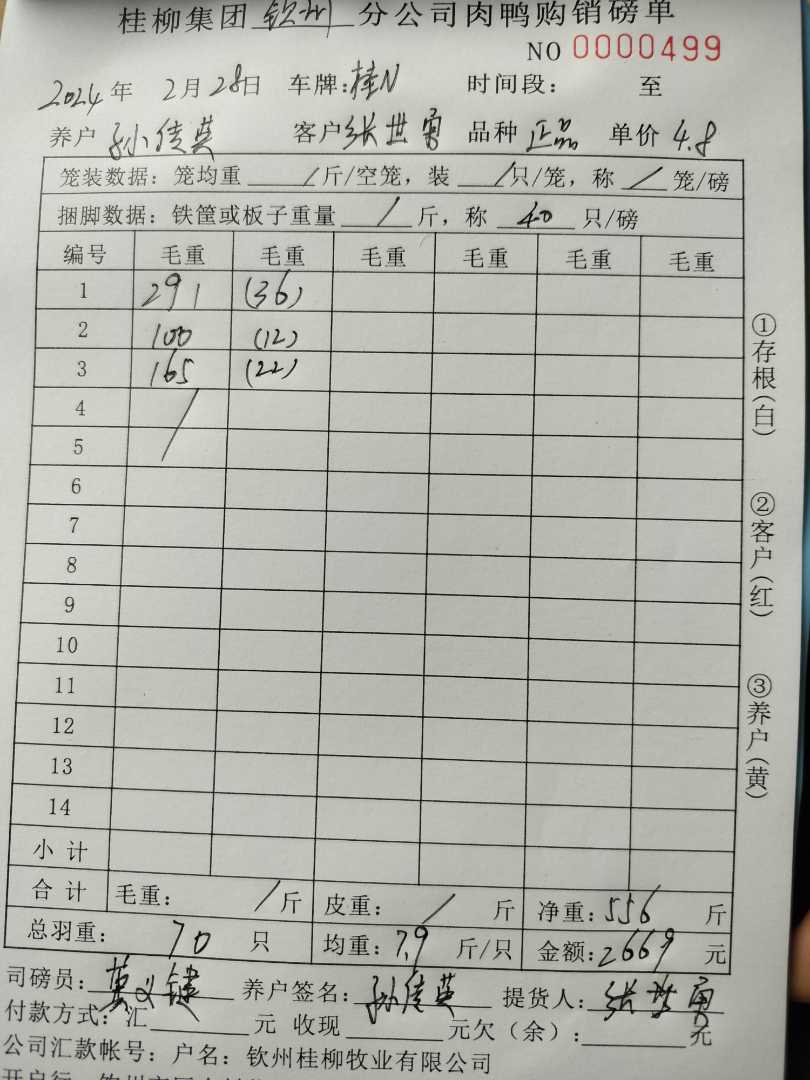 桂柳集团 钦州 分公司肉鸭购销磅单
NO 0000499
2024年 2月28日 车牌:桂N 时间段: 至
养户 孙倩英 客户 张世勇 品种 正品 单价 4.8
笼装数据:笼均重 / 斤/空笼,装 / 只/笼,称 / 笼/磅
捆脚数据:铁筐或板子重量 / 斤,称 40 只/磅
编号 毛重 毛重 毛重 毛重 毛重 毛重
1 291 (36)
2 100 (12)
3 165 (22)
4 /
5
6
7
8
9
10
11
12
13
14
小计
合计 毛重: / 斤 皮重: / 斤 净重:556 斤
总羽重: 70 只 均重:7.9 斤/只 金额:2669 元
司磅员: 养户签名:孙倩英 提货人:张世勇
付款方式:汇 元 收现 元欠(余): 元
公司汇款帐号:户名:钦州桂柳牧业有限公司
①存根(白)
②客户(红)
③养户(黄)